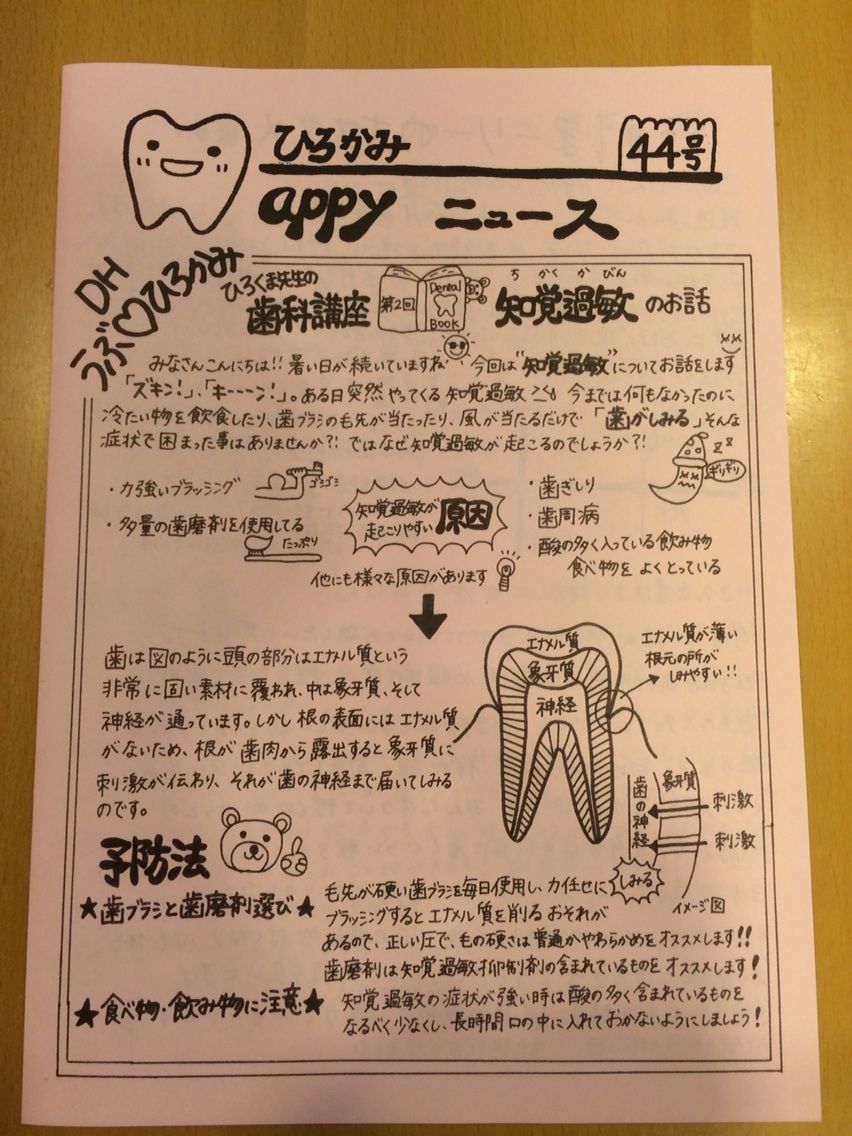 ひろかみ
44号
appy ニュース
DH
うぶ♡ひろかみ
ひろくま先生の
歯科講座
第2回
Dental
BOOK
ちかくかびん
知覚過敏のお話
みなさんこんにちは!! 暑い日が続いていますね 今回は"知覚過敏"についてお話をします
「ズキン!」、「キーーーン!」。ある日突然やってくる知覚過敏 今までは何もなかったのに
冷たい物を飲食したり、歯ブラシの毛先が当たったり、風が当たるだけで「歯がしみる」そんな
症状で困まった事はありませんか?! ではなぜ知覚過敏が起こるのでしょうか?!
・力強いブラッシング
ゴシゴシ
・多量の歯磨剤を使用してる
たっぷり
知覚過敏が
起こりやすい
原因
他にも様々な原因があります
・歯ぎしり
zz
ギリギリ
・歯周病
・酸の多く入っている飲み物
食べ物をよくとっている
歯は図のように頭の部分はエナメル質という
非常に固い素材に覆われ、中は象牙質、そして
神経が通っています。しかし根の表面にはエナメル質
がないため、根が歯肉から露出すると象牙質に
刺激が伝わり、それが歯の神経まで届いてしみる
のです。
エナメル質
象牙質
神経
エナメル質が薄い
根元の所が
しみやすい!!
歯の神経
象牙質
刺激
刺激
しみる
イメージ図
予防法
★歯ブラシと歯磨剤選び★
毛先が硬い歯ブラシを毎日使用し、力任せに
ブラッシングするとエナメル質を削るおそれが
あるので、正しい圧で、毛の硬さは普通かやわらかめをオススメします!!
歯磨剤は知覚過敏抑制剤の含まれているものをオススメします!
★食べ物・飲み物に注意★
知覚過敏の症状が強い時は酸の多く含まれているものを
なるべく少なくし、長時間口の中に入れておかないようにしましょう!